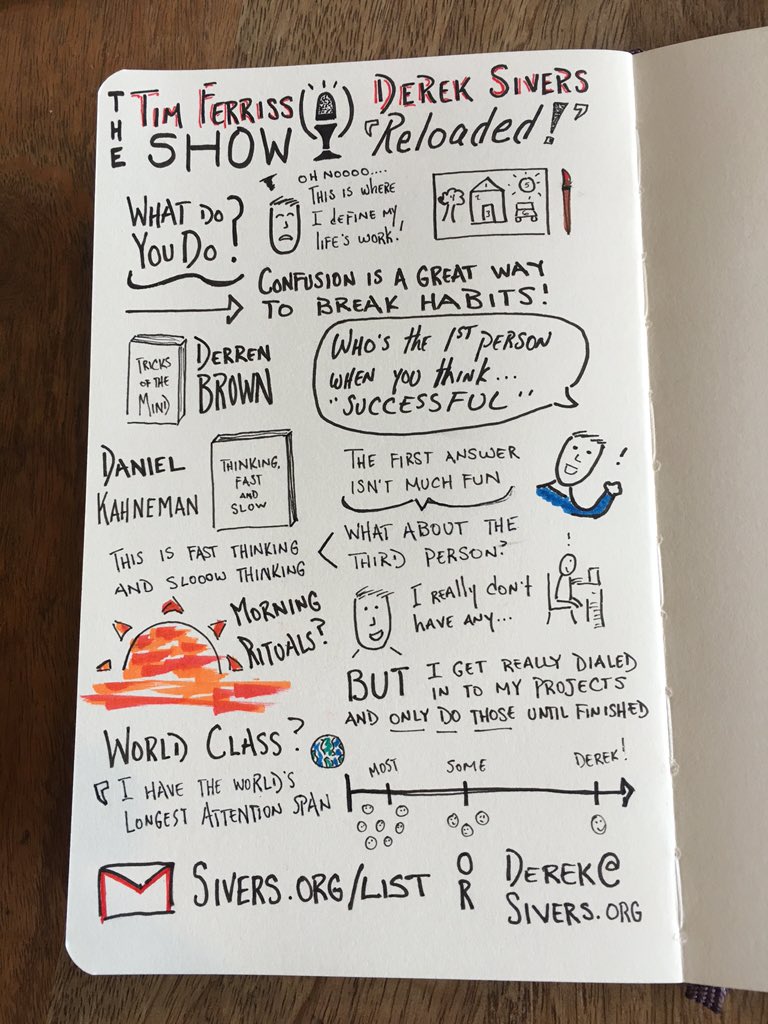 THE TIM FERRISS SHOW
DEREK SIVERS
"Reloaded!"
WHAT DO
YOU DO?
OH NOOOO....
THIS IS WHERE
I DEFINE MY
LIFE'S WORK!
CONFUSION IS A GREAT WAY
TO BREAK HABITS!
TRICKS
OF THE
MIND
DERREN
BROWN
WHO'S the 1ST PERSON
WHEN YOU THINK...
"SUCCESSFUL"
DANIEL
KAHNEMAN
THINKING,
FAST
AND
SLOW
THE FIRST ANSWER
ISN'T MUCH FUN
!
WHAT ABOUT THE
THIRD PERSON?
THIS IS FAST THINKING
AND SLOOOW THINKING
MORNING
RITUALS?
I REALLY DON'T
HAVE ANY...
!
BUT I GET REALLY DIALED
IN TO MY PROJECTS
AND ONLY DO THOSE UNTIL FINISHED
WORLD CLASS?
I HAVE THE WORLD'S
LONGEST ATTENTION SPAN
MOST
SOME
DEREK!
SIVERS.ORG/LIST
OR
DEREK@
SIVERS.ORG